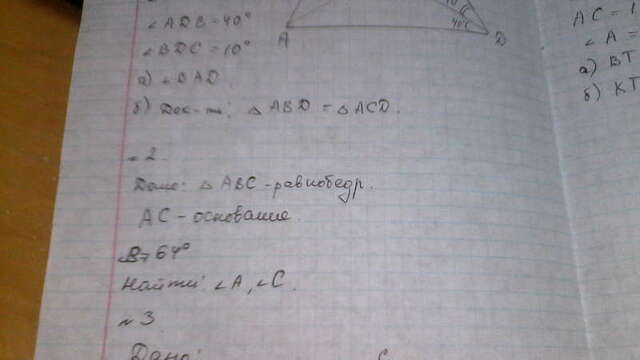 ∠ADB=40°
∠BDC=10°
а) ∠BAD.
б) Док-ть: △ABD = △ACD.
A
40°
D
№2.
Дано: △ABC - равнобедр.
AC - основание.
∠B=64°
Найти: ∠A, ∠C.
№3
Дано:
C
AC = 1
∠A =
а) BT
б) KT